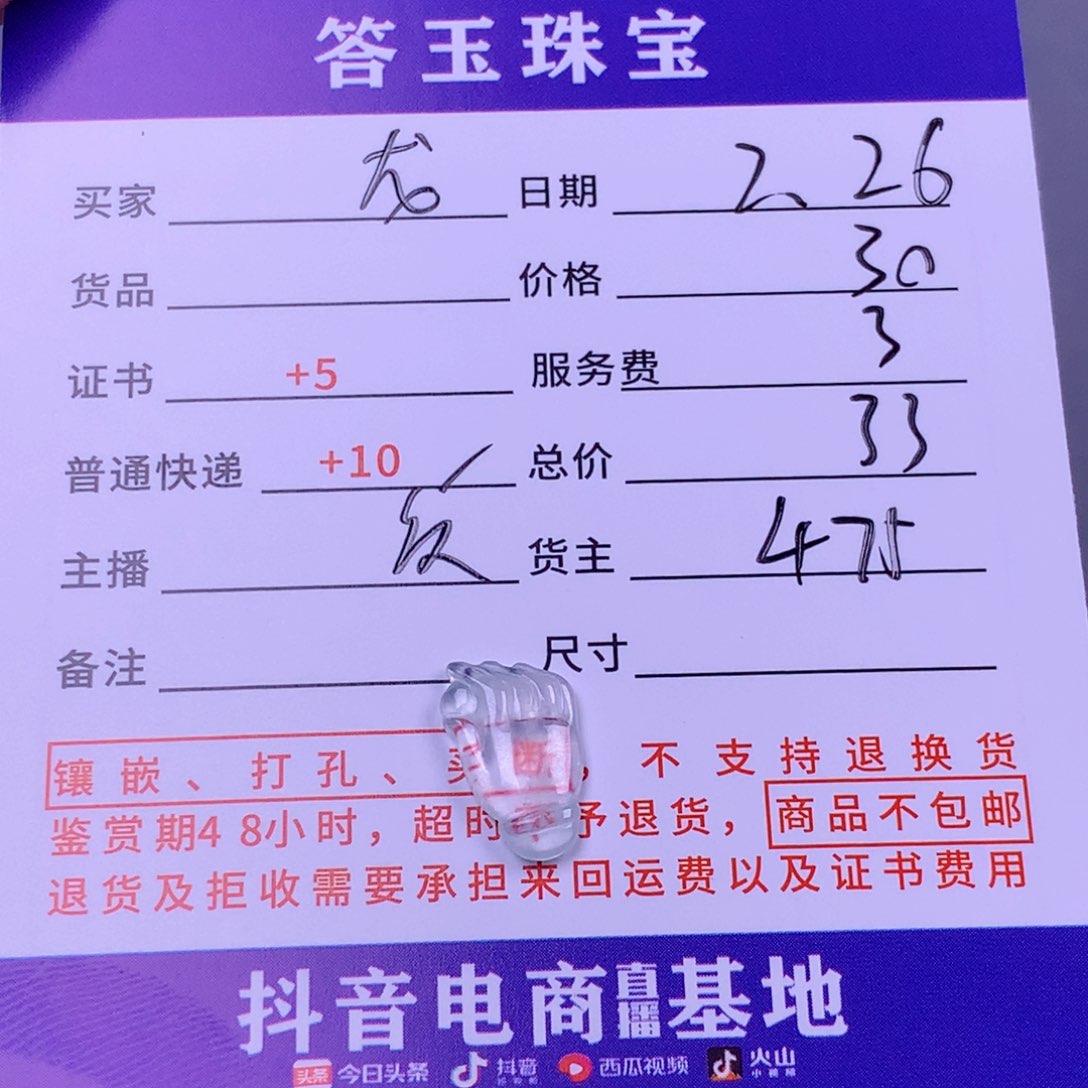 答玉珠宝
买家 龙 日期 2、26
货品 价格 30
证书 +5 服务费 3
普通快递 +10 总价 33
主播 货主 475
备注 尺寸
镶嵌、打孔、买断，不支持退换货
鉴赏期48小时，超时不予退货，商品不包邮
退货及拒收需要承担来回运费以及证书费用
抖音电商直播基地
头条 今日头条 抖音 西瓜视频 火山